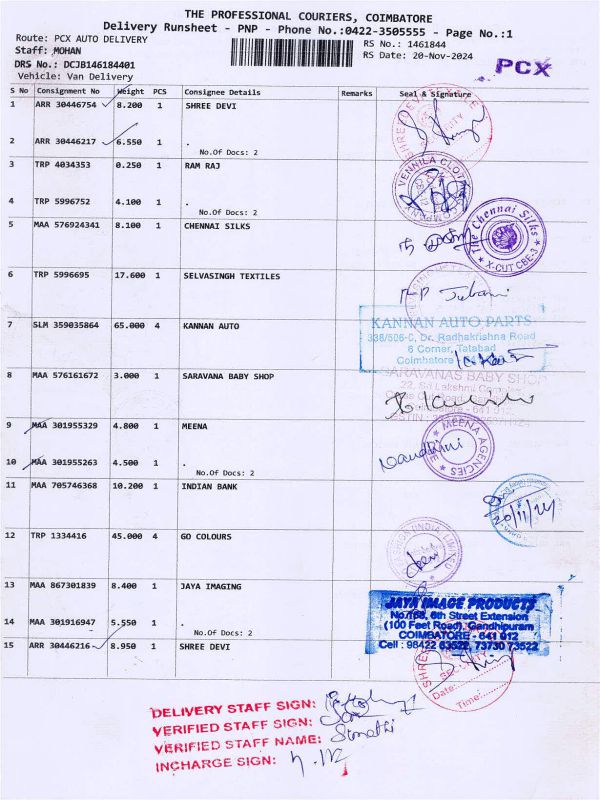 THE PROFESSIONAL COURIERS, COIMBATORE
Delivery Runsheet - PNP - Phone No.:0422-3505555 - Page No.:1
Route: PCX AUTO DELIVERY
Staff: MOHAN
DRS No.: DCJB146184401
Vehicle: Van Delivery
RS No.: 1461844
RS Date: 20-Nov-2024
PCX
S No Consignment No Weight PCS Consignee Details Remarks Seal & Signature
1 ARR 30446754 8.200 1 SHREE DEVI
2 ARR 30446217 6.550 1 .
No.Of Docs: 2
3 TRP 4034353 0.250 1 RAM RAJ
VENNILA CLOTH
4 TRP 5996752 4.100 1 .
No.Of Docs: 2
5 MAA 576924341 8.100 1 CHENNAI SILKS
The Chennai Silks
★ X-CUT CBE-3 ★
6 TRP 5996695 17.600 1 SELVASINGH TEXTILES
7 SLM 359035864 65.000 4 KANNAN AUTO
KANNAN AUTO PARTS
Dr. Radhakrishna Road
6 Corner, Tatabad
Coimbatore
8 MAA 576161672 3.000 1 SARAVANA BABY SHOP
SARAVANAS BABY SHOP
9 MAA 301955329 4.800 1 MEENA
MEENA AGENCIES
Nandhini
10 MAA 301955263 4.500 1 .
No.Of Docs: 2
11 MAA 705746368 10.200 1 INDIAN BANK
20/11/24
12 TRP 1334416 45.000 4 GO COLOURS
13 MAA 867301839 8.400 1 JAYA IMAGING
JAYA IMAGE PRODUCTS
No.168, 6th Street Extension
(100 Feet Road), Gandhipuram
COIMBATORE - 641 012
Cell : 98422 63522, 73730 73522
14 MAA 301916947 5.550 1 .
No.Of Docs: 2
15 ARR 30446216 8.950 1 SHREE DEVI
Date:
Time:
DELIVERY STAFF SIGN:
VERIFIED STAFF SIGN:
VERIFIED STAFF NAME: Sumathi
INCHARGE SIGN: